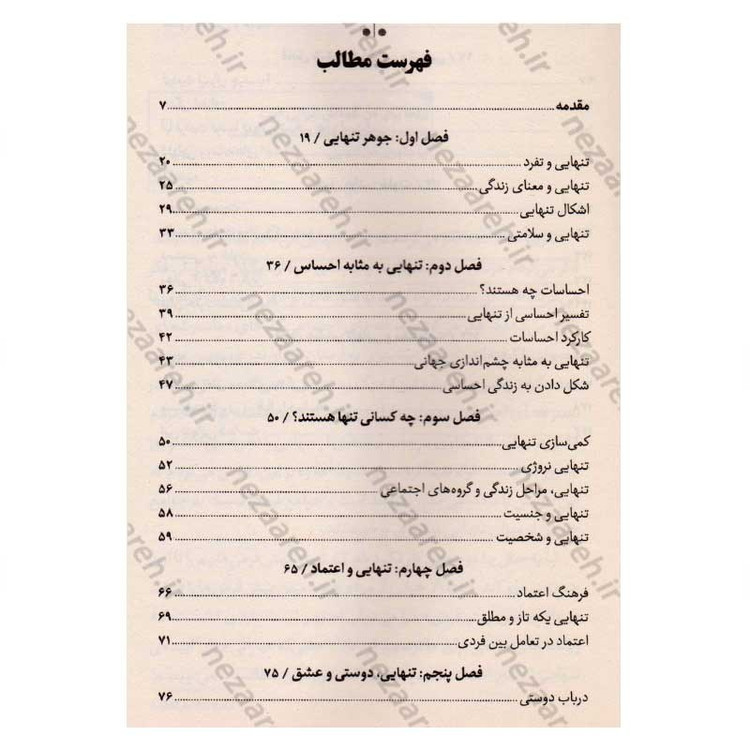 فهرست مطالب
مقدمه ........ ۷
فصل اول: جوهر تنهایی / ۱۹
تنهایی و تفرد ........ ۲۰
تنهایی و معنای زندگی ........ ۲۵
اشکال تنهایی ........ ۲۹
تنهایی و سلامتی ........ ۳۳
فصل دوم: تنهایی به مثابه احساس / ۳۶
احساسات چه هستند؟ ........ ۳۶
تفسیر احساسی از تنهایی ........ ۳۹
کارکرد احساسات ........ ۴۲
تنهایی به مثابه چشم‌اندازی جهانی ........ ۴۳
شکل دادن به زندگی احساسی ........ ۴۷
فصل سوم: چه کسانی تنها هستند؟ / ۵۰
کمی‌سازی تنهایی ........ ۵۰
تنهایی نروژی ........ ۵۲
تنهایی، مراحل زندگی و گروه‌های اجتماعی ........ ۵۶
تنهایی و جنسیت ........ ۵۸
تنهایی و شخصیت ........ ۵۹
فصل چهارم: تنهایی و اعتماد / ۶۵
فرهنگ اعتماد ........ ۶۶
تنهایی یکه تاز و مطلق ........ ۶۹
اعتماد در تعامل بین فردی ........ ۷۱
فصل پنجم: تنهایی، دوستی و عشق / ۷۵
درباب دوستی ........ ۷۶
nezaareh.ir